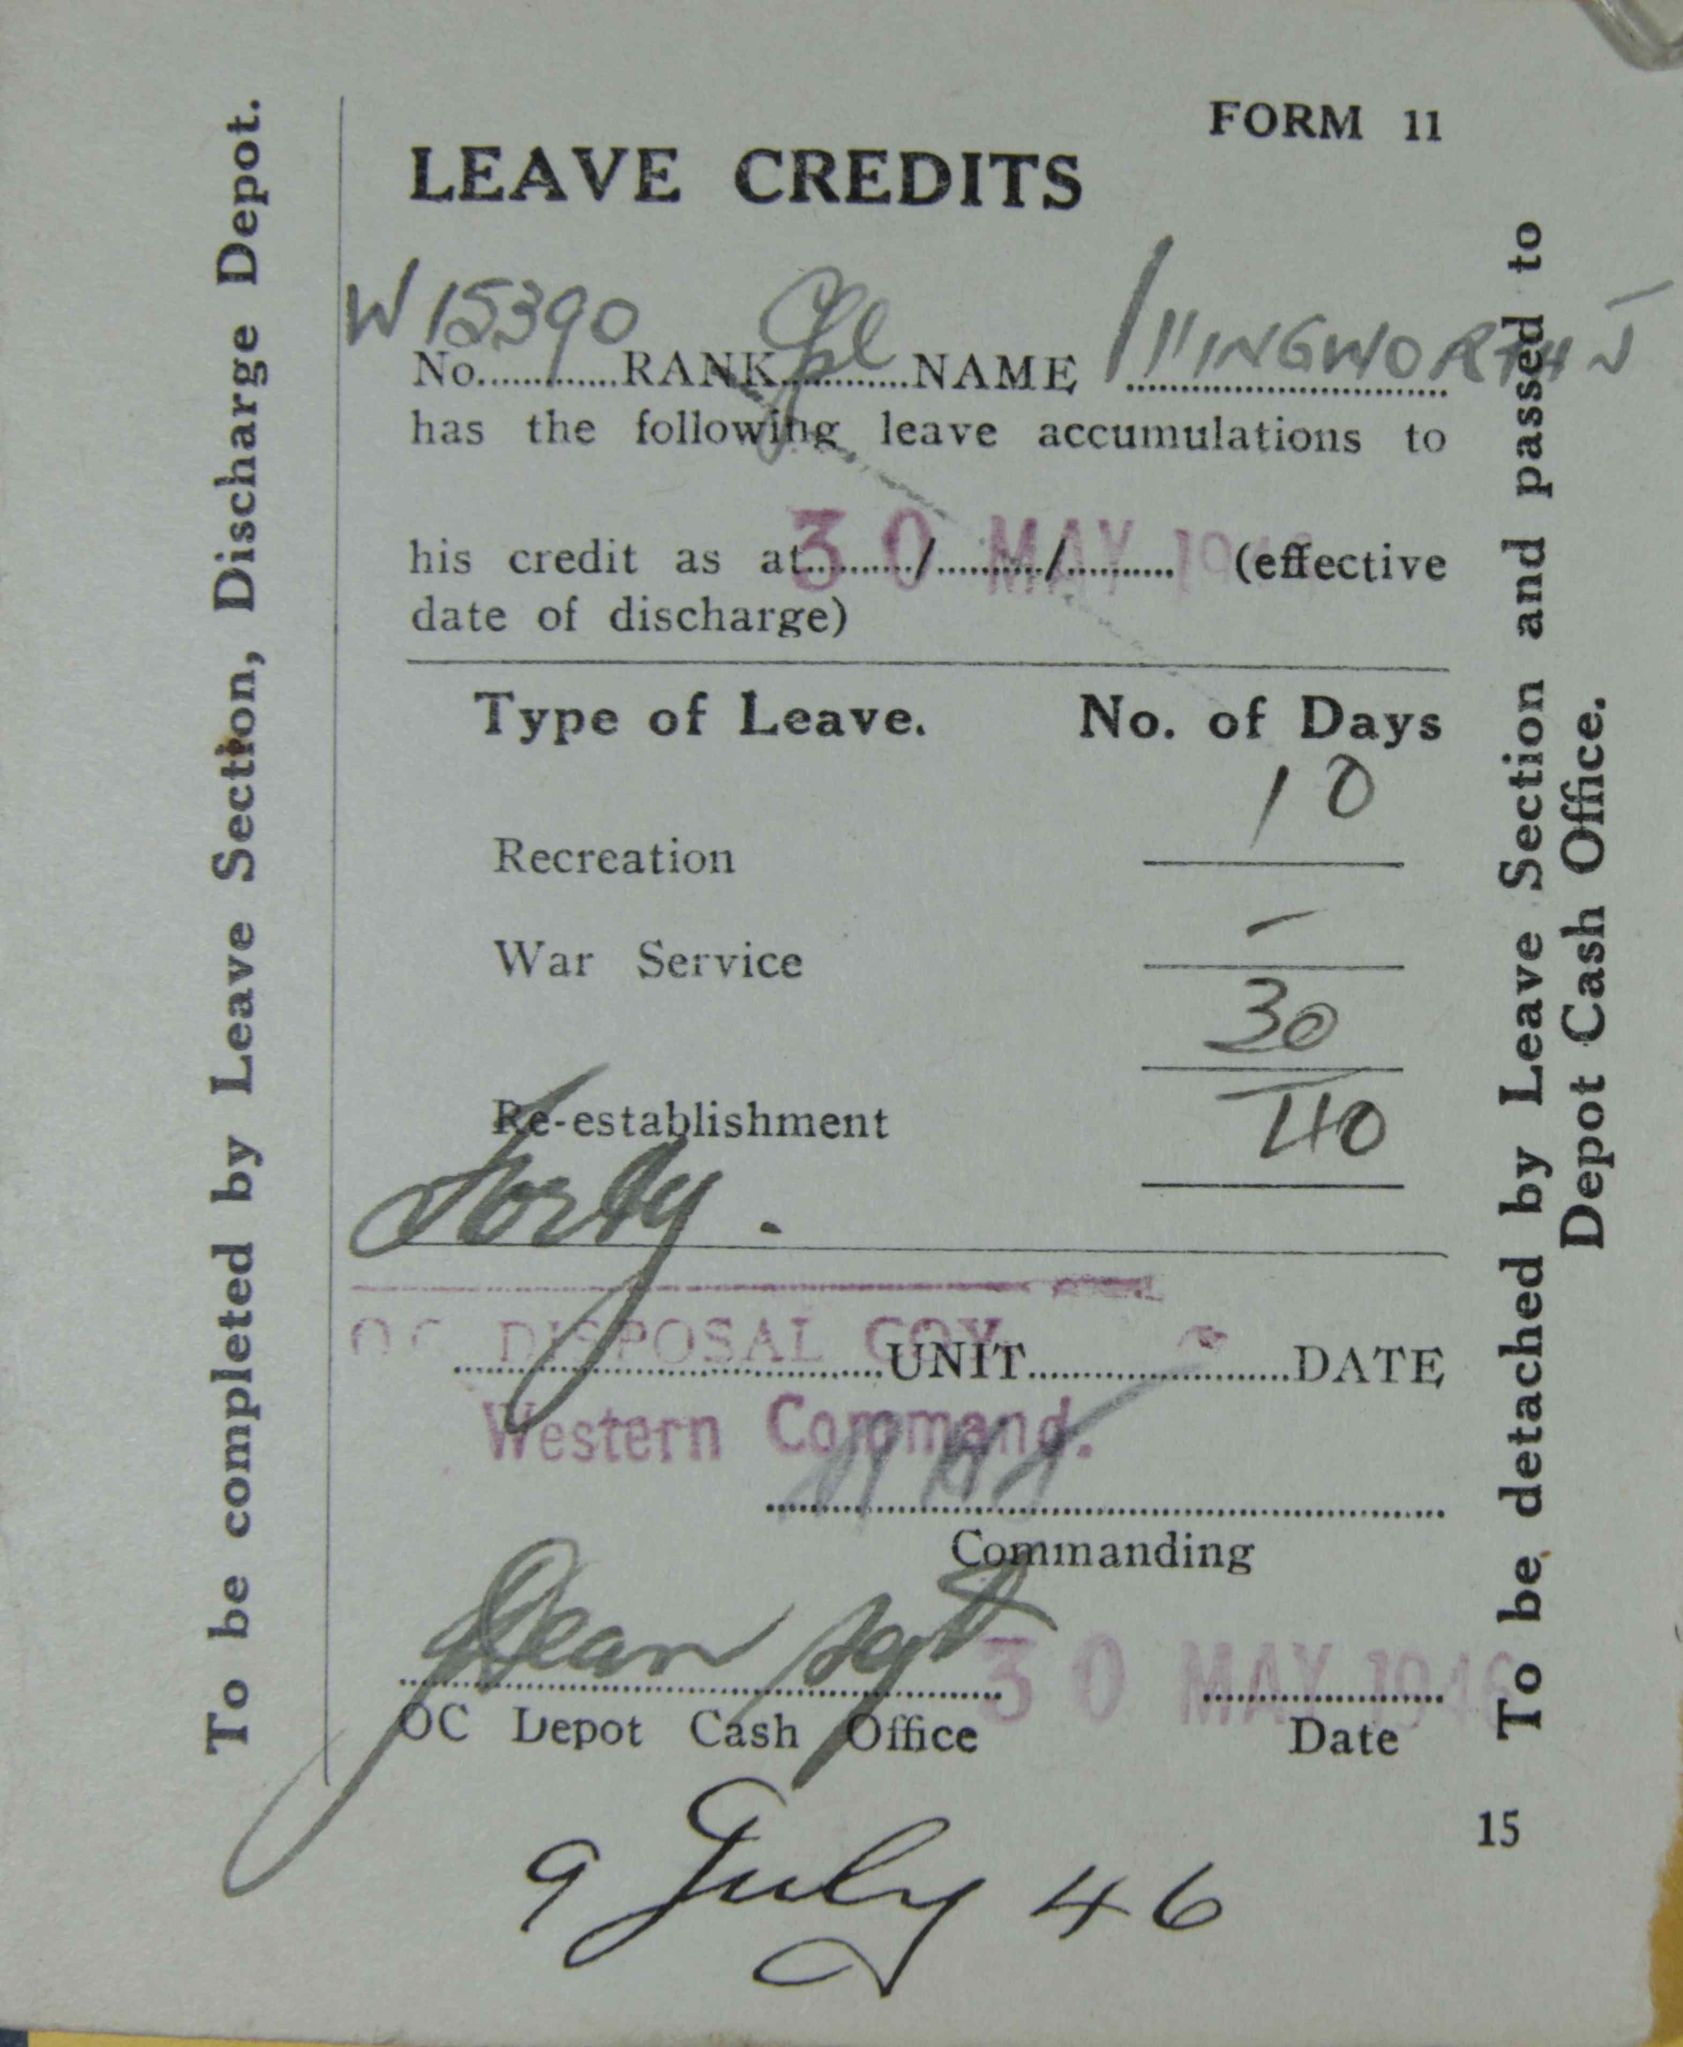 To be completed by Leave Section, Discharge Depot.
FORM 11
LEAVE CREDITS
No. W15390 RANK Cpl NAME ILLINGWORTH J
has the following leave accumulations to
his credit as at 30 / MAY / 1946 (effective
date of discharge)
Type of Leave. No. of Days
Recreation 10
War Service -
Re-establishment 30
40
Forty.
OC DISPOSAL COY UNIT DATE
Western Command.
Commanding
Dean Sgt 30 MAY 1946
OC Depot Cash Office Date
15
9 July 46
To be detached by Leave Section and passed to
Depot Cash Office.